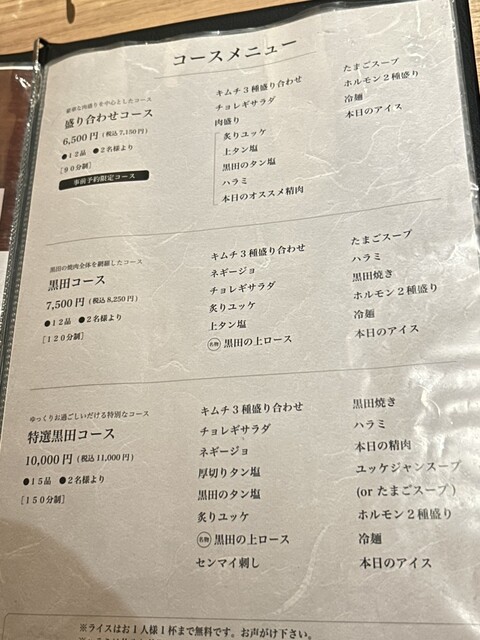 コースメニュー
豪華な肉盛りを中心としたコース
盛り合わせコース
6,500円 (税込7,150円)
●12品 ●2名様より
[90分制]
事前予約限定コース
キムチ3種盛り合わせ
チョレギサラダ
肉盛り
炙りユッケ
上タン塩
黒田のタン塩
ハラミ
本日のオススメ精肉
たまごスープ
ホルモン2種盛り
冷麺
本日のアイス
黒田の焼肉全体を網羅したコース
黒田コース
7,500円 (税込8,250円)
●12品 ●2名様より
[120分制]
キムチ3種盛り合わせ
ネギージョ
チョレギサラダ
炙りユッケ
上タン塩
名物 黒田の上ロース
たまごスープ
ハラミ
黒田焼き
ホルモン2種盛り
冷麺
本日のアイス
ゆっくりお過ごしいだける特別なコース
特選黒田コース
10,000円 (税込11,000円)
●15品 ●2名様より
[150分制]
キムチ3種盛り合わせ
チョレギサラダ
ネギージョ
厚切りタン塩
黒田のタン塩
炙りユッケ
名物 黒田の上ロース
センマイ刺し
黒田焼き
ハラミ
本日の精肉
ユッケジャンスープ
(or たまごスープ)
ホルモン2種盛り
冷麺
本日のアイス
※ライスはお1人様1杯まで無料です。お声がけ下さい。